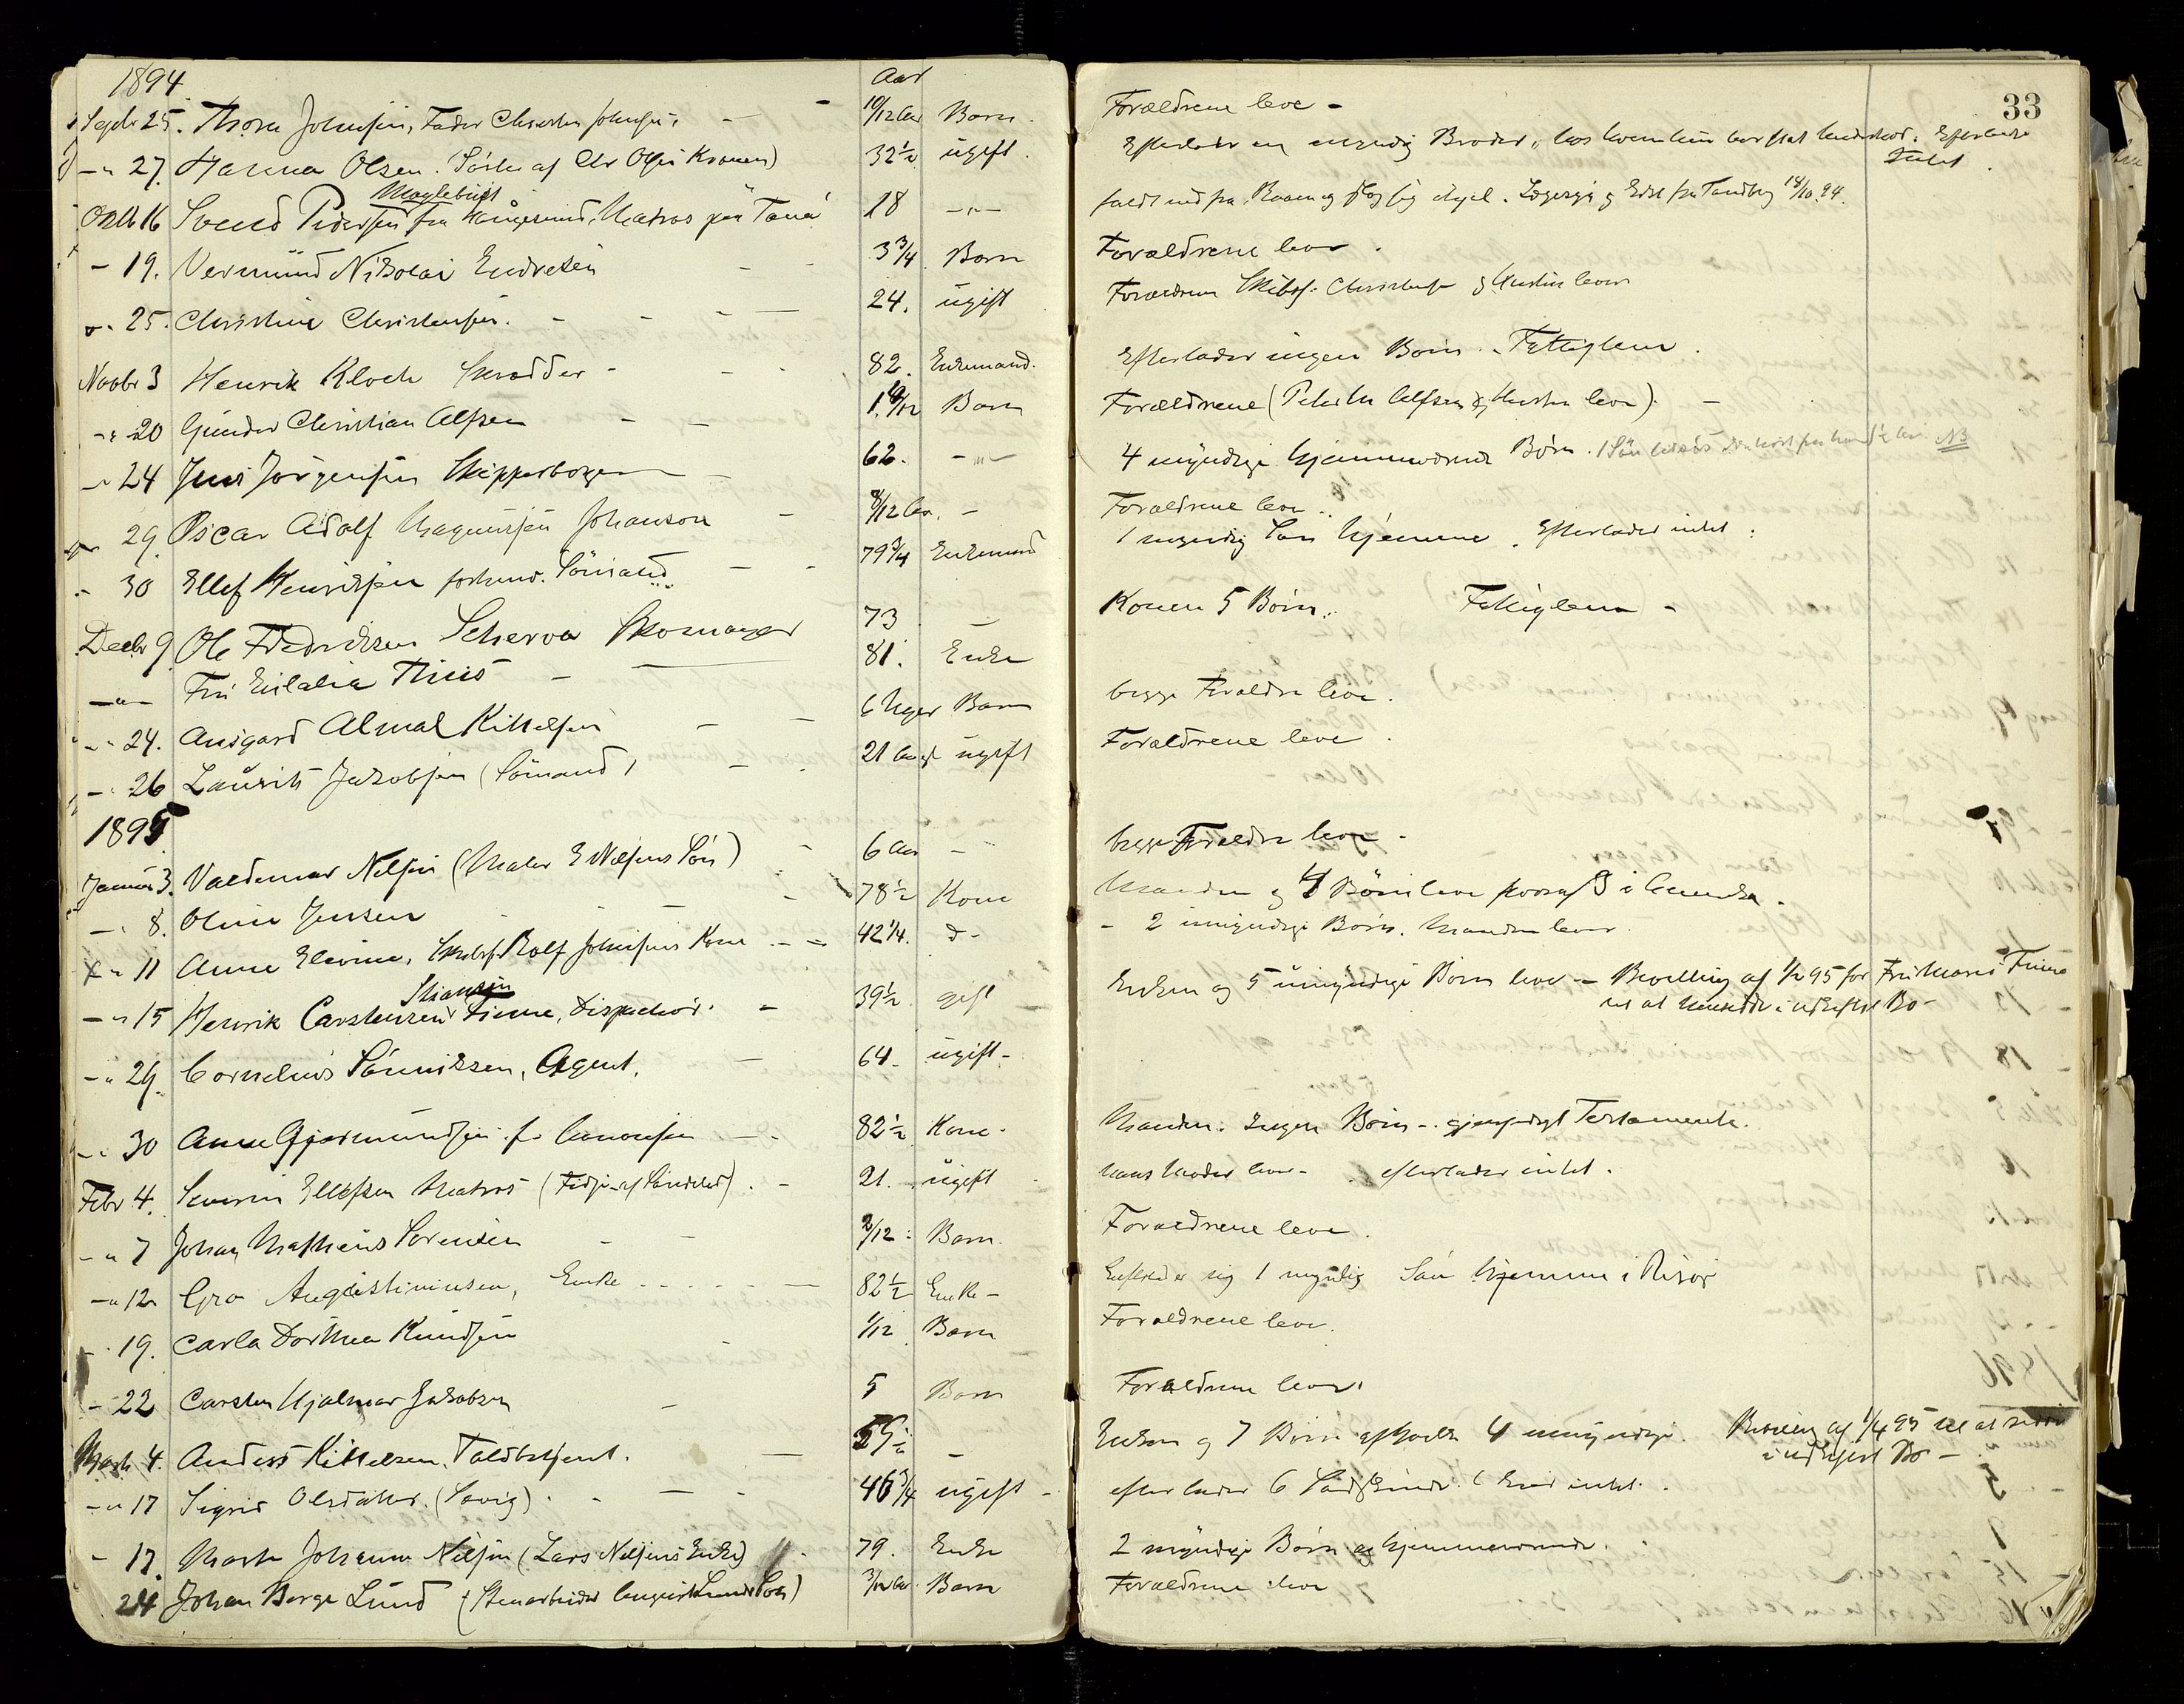 33
1894 Aar
Septr 25. Thora Johnsen, Fader Christen Johnsen 10/12 Aar Barn. Forældrene leve -
-"- 27. Hanna Olsen. (Søster af Chr Olsen Kronen) 32½ ugift. Efterlader en myndig Broder, hos hvem hun har havt Underhold. Efterlader Intet.
Maglebust
Octb 16 Svend Pedersen fra Haugesund, Matros paa "Tana" 28 -"- faldt ned fra Raaen og slog sig ihjel. 18/10.94.
- 19. Vermund Nikolai Endresen 3¾ Barn Forældrene leve.
- 25. Christine Christensen. 24. ugift Forældrene Skibsf. Christensen og Hustru lever
Novbr 3 Henrik Kloch Skrædder 82. Enkemand. Efterlader ingen Børn. Fattiglem.
-"- 20 Gunder Christian Alfsen 1 10/12 Barn Forældrene (Peder M Alfsen og Hustru leve).
-"- 24 Jens Jørgensen Skipperborgen 62. -"- 4 myndige hjemmeværende Børn. NB
- 29. Oscar Adolf Magnussen Johanson 8/12 Aar. - Forældrene leve.
- 30 Ellef Henriksen forhenv. Sømand 79¾ Enkemand 1 myndig Søn hjemme. Efterlader intet.
Decbr 9. Ole Fredriksen Scherva Skomager 73 - Konen 5 Børn. Fattiglem -
-"- Fru Eulalia Thiis 81. Enke
-"- 24. Ansgard Almal Kittelsen 6 Uger Barn begge Forældre leve.
-"- 26 Laurits Jakobsen (Sømand) 21 Aar ugift Forældrene leve.
1895
Januar 3. Valdemar Nilsen (Maler E Nilsens Søn) 6 Aar - begge Forældre leve -
-"- 8. Oline Jensen 78½ Kone Manden og 4 Børn leve hvoraf 3 i Amerika.
x " 11 Anne Elevine, Skibsf. Rolf Johnsens Kone 42¼. d- - 2 umyndige Børn. Manden lever.
Stiansen
-" 15 Henrik Carstensen Finne, Dispachør. 39½ gift Enken og 5 umyndige Børn leve - Bevilling af 1/2 95 for Fru Maren Finne
til at hensidde i uskiftet Bo -
-" 29. Cornelius Sønniksen, Agent. 64. ugift.
-" 30 Anne Gjermundsen f. Aanonsen 82½ Kone. Manden. Ingen Børn - gjensidigt Testamente.
Febr 4. Severin Ellefsen Matros 21. ugift hans Moder lever - efterlader intet.
-" 7 Johan Mathæus Sørensen 2/12 Barn. Forældrene leve.
-" 12 Gro Augustiniusen, Enke 82½ Enke - Efterlader sig 1 myndig Søn hjemme i Risør
-" 19. Carla Dorthea Knudsen 1/12 Barn Forældrene leve.
- 22 Carsten Hjalmar Jakobsen 5 Barn Forældrene leve.
Marts 4. Anders Kittelsen, Toldbetjent. 59½ - Enken og 7 Børn hvoraf 4 umyndige. Bevilling af 1/4 95 til at sidde
i uskiftet Bo -
-" 17 Sigrid Olsdatter. (Søvig) 46¾ ugift - efterlader 6 Sødskende.
- 17. Marthe Johanne Nilsen (Lars Nilsens Enke) 79. Enke 2 myndige Børn hjemmeværende.
24 Johan Børge Lund (Stenarbeider August Lunds Søn) 3/12 Aar Barn Forældrene leve